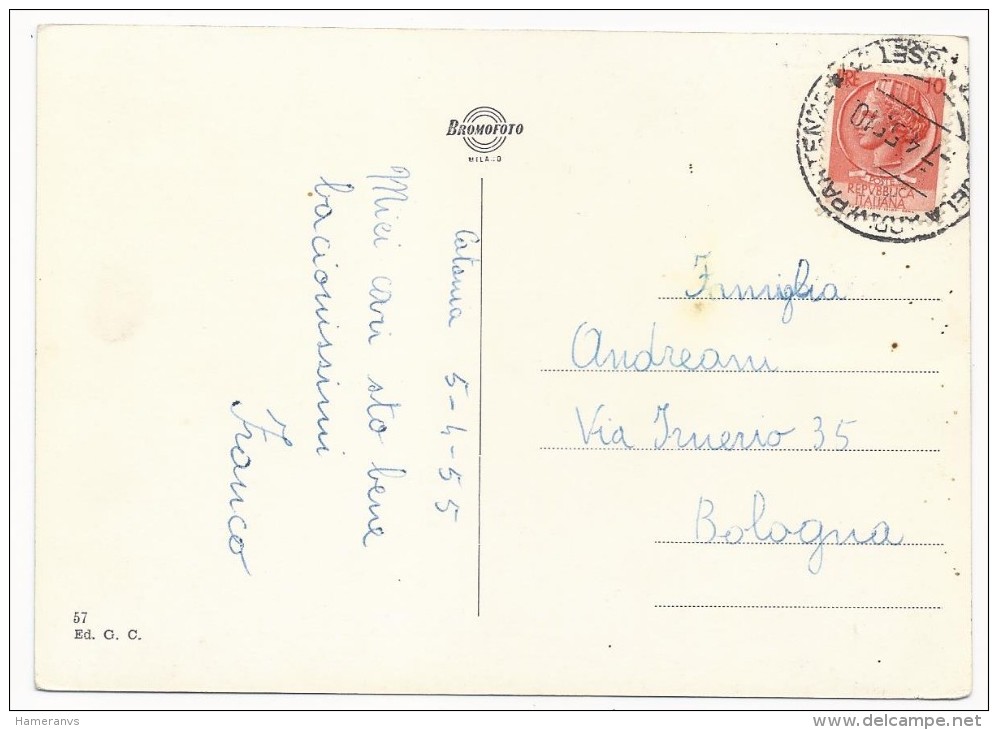 BROMOFOTO
MILANO
Catania 5-4-55
Miei cari sto bene
bacionissimi
Franco
57
Ed. G. C.
LIRE 10
POSTE
REPVBBLICA
ITALIANA
Famiglia
Andreani
Via Irnerio 35
Bologna
Hameranvs
delcampe.net